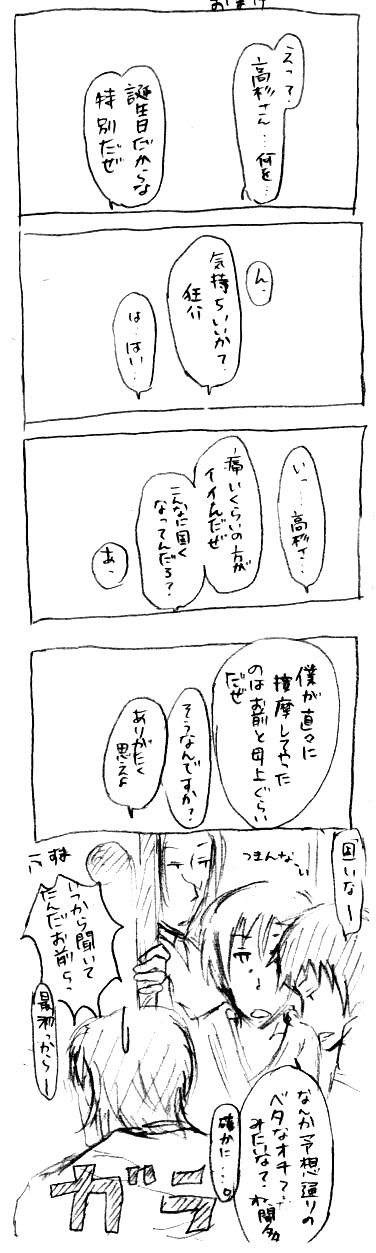 おまけ
えっ?
高杉さん…何を…
誕生日だからな
特別だぜ
ん、
気持ちいいか?
狂介
は…はい…
いっ…高杉さ…
痛いくらいの方が
イイんだぜ
こんなに固く
なってんだろ?
あ、
僕が直々に
按摩してやった
のはお前と母上ぐらい
だぜ
そうなんですか?
ありがたく
思えよ
固いなー
つまんなーい
いつから聞いて
たんだお前ら、
最初っからー
なんか予想通りの
ベタなオチって
みたいな?
確かに…。
ガラ